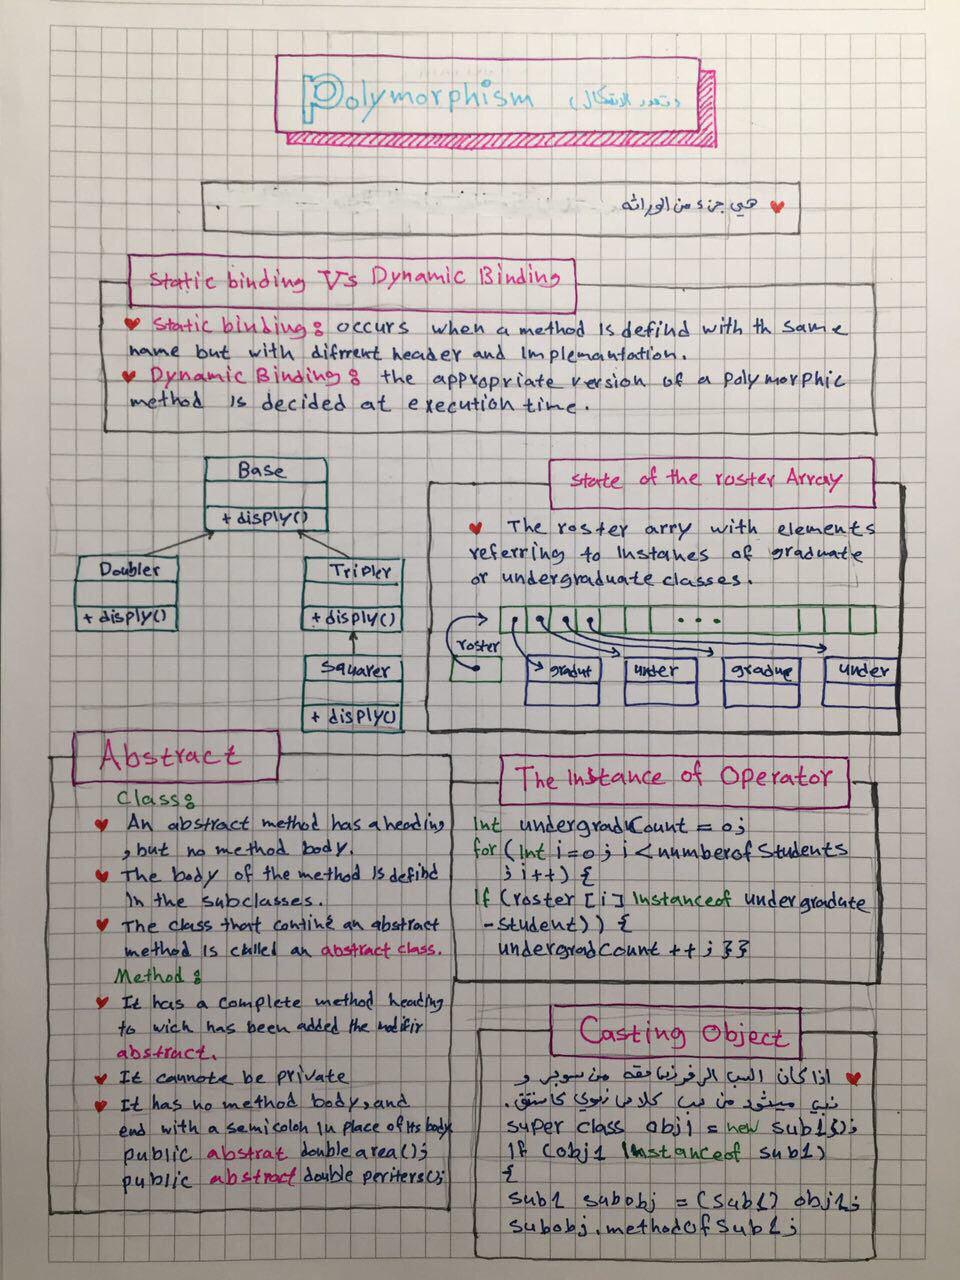 Polymorphism (تعدد الاشكال)
هي جزء من الوراثه
Static binding Vs Dynamic Binding
Static binding: occurs when a method is defind with th same
name but with difrrent header and implemantation.
Dynamic Binding: the appropriate version of a polymorphic
method is decided at execution time.
Base
+ disply()
Doubler
+ disply()
Tripler
+ disply()
Squarer
+ disply()
State of the roster Array
The roster arry with elements
referring to instanes of graduate
or undergraduate classes.
...
roster
gradut
under
gradue
under
Abstract
Class:
An abstract method has a heading
, but no method body.
The body of the method is defind
in the subclasses.
The class that contine an abstract
method is called an abstract class.
Method:
It has a complete method heading
to wich has been added the modifir
abstract.
It cannote be private
It has no method body, and
end with a semicolon in place of its body
public abstrat double area();
public abstract double periters();
The instance of Operator
int undergradCount = 0;
for (int i=0; i<numberofStudents
; i++) {
if (roster [i] instanceof undergradute
-Student)) {
undergradCount ++; }}
Casting Object
اذا كان من سوبر و
من كلاس
super class obj1 = new sub1();
if (obj1 instanceof sub1)
{
sub1 subobj = (sub1) obj1;
subobj.methodOfSub1;